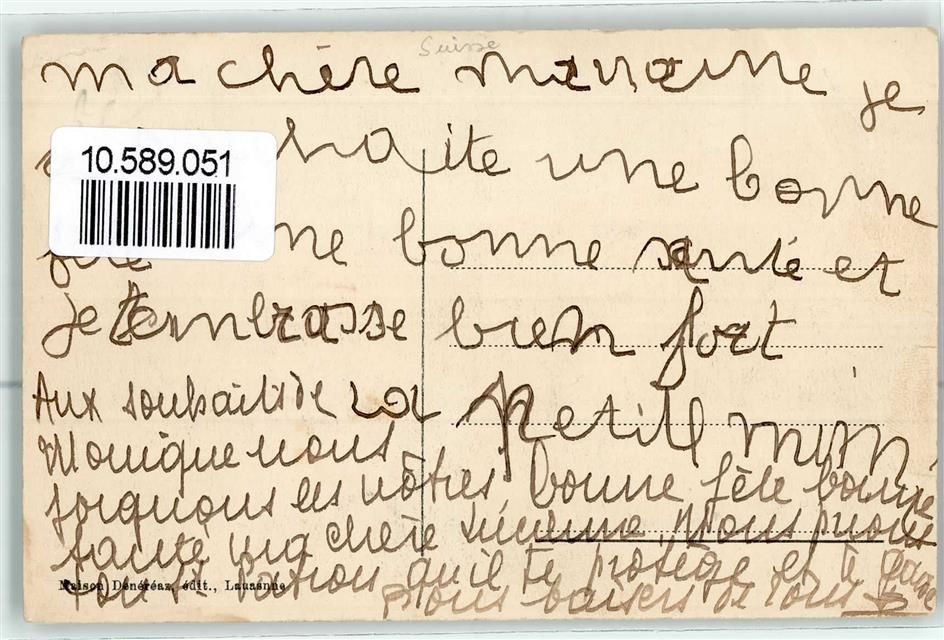 Suisse
ma chère marraine je
10.589.051
haite une bonne
fête ne bonne santé et
je t'embrasse bien fort
la Petite mimi
Aux souhaits de
Monique nous
joignons les nôtres, bonne fête bonne
santé ma chère Nous prions
qu'il te protège et te
Maison Dénéréaz, édit., Lausanne
bons baisers de tous